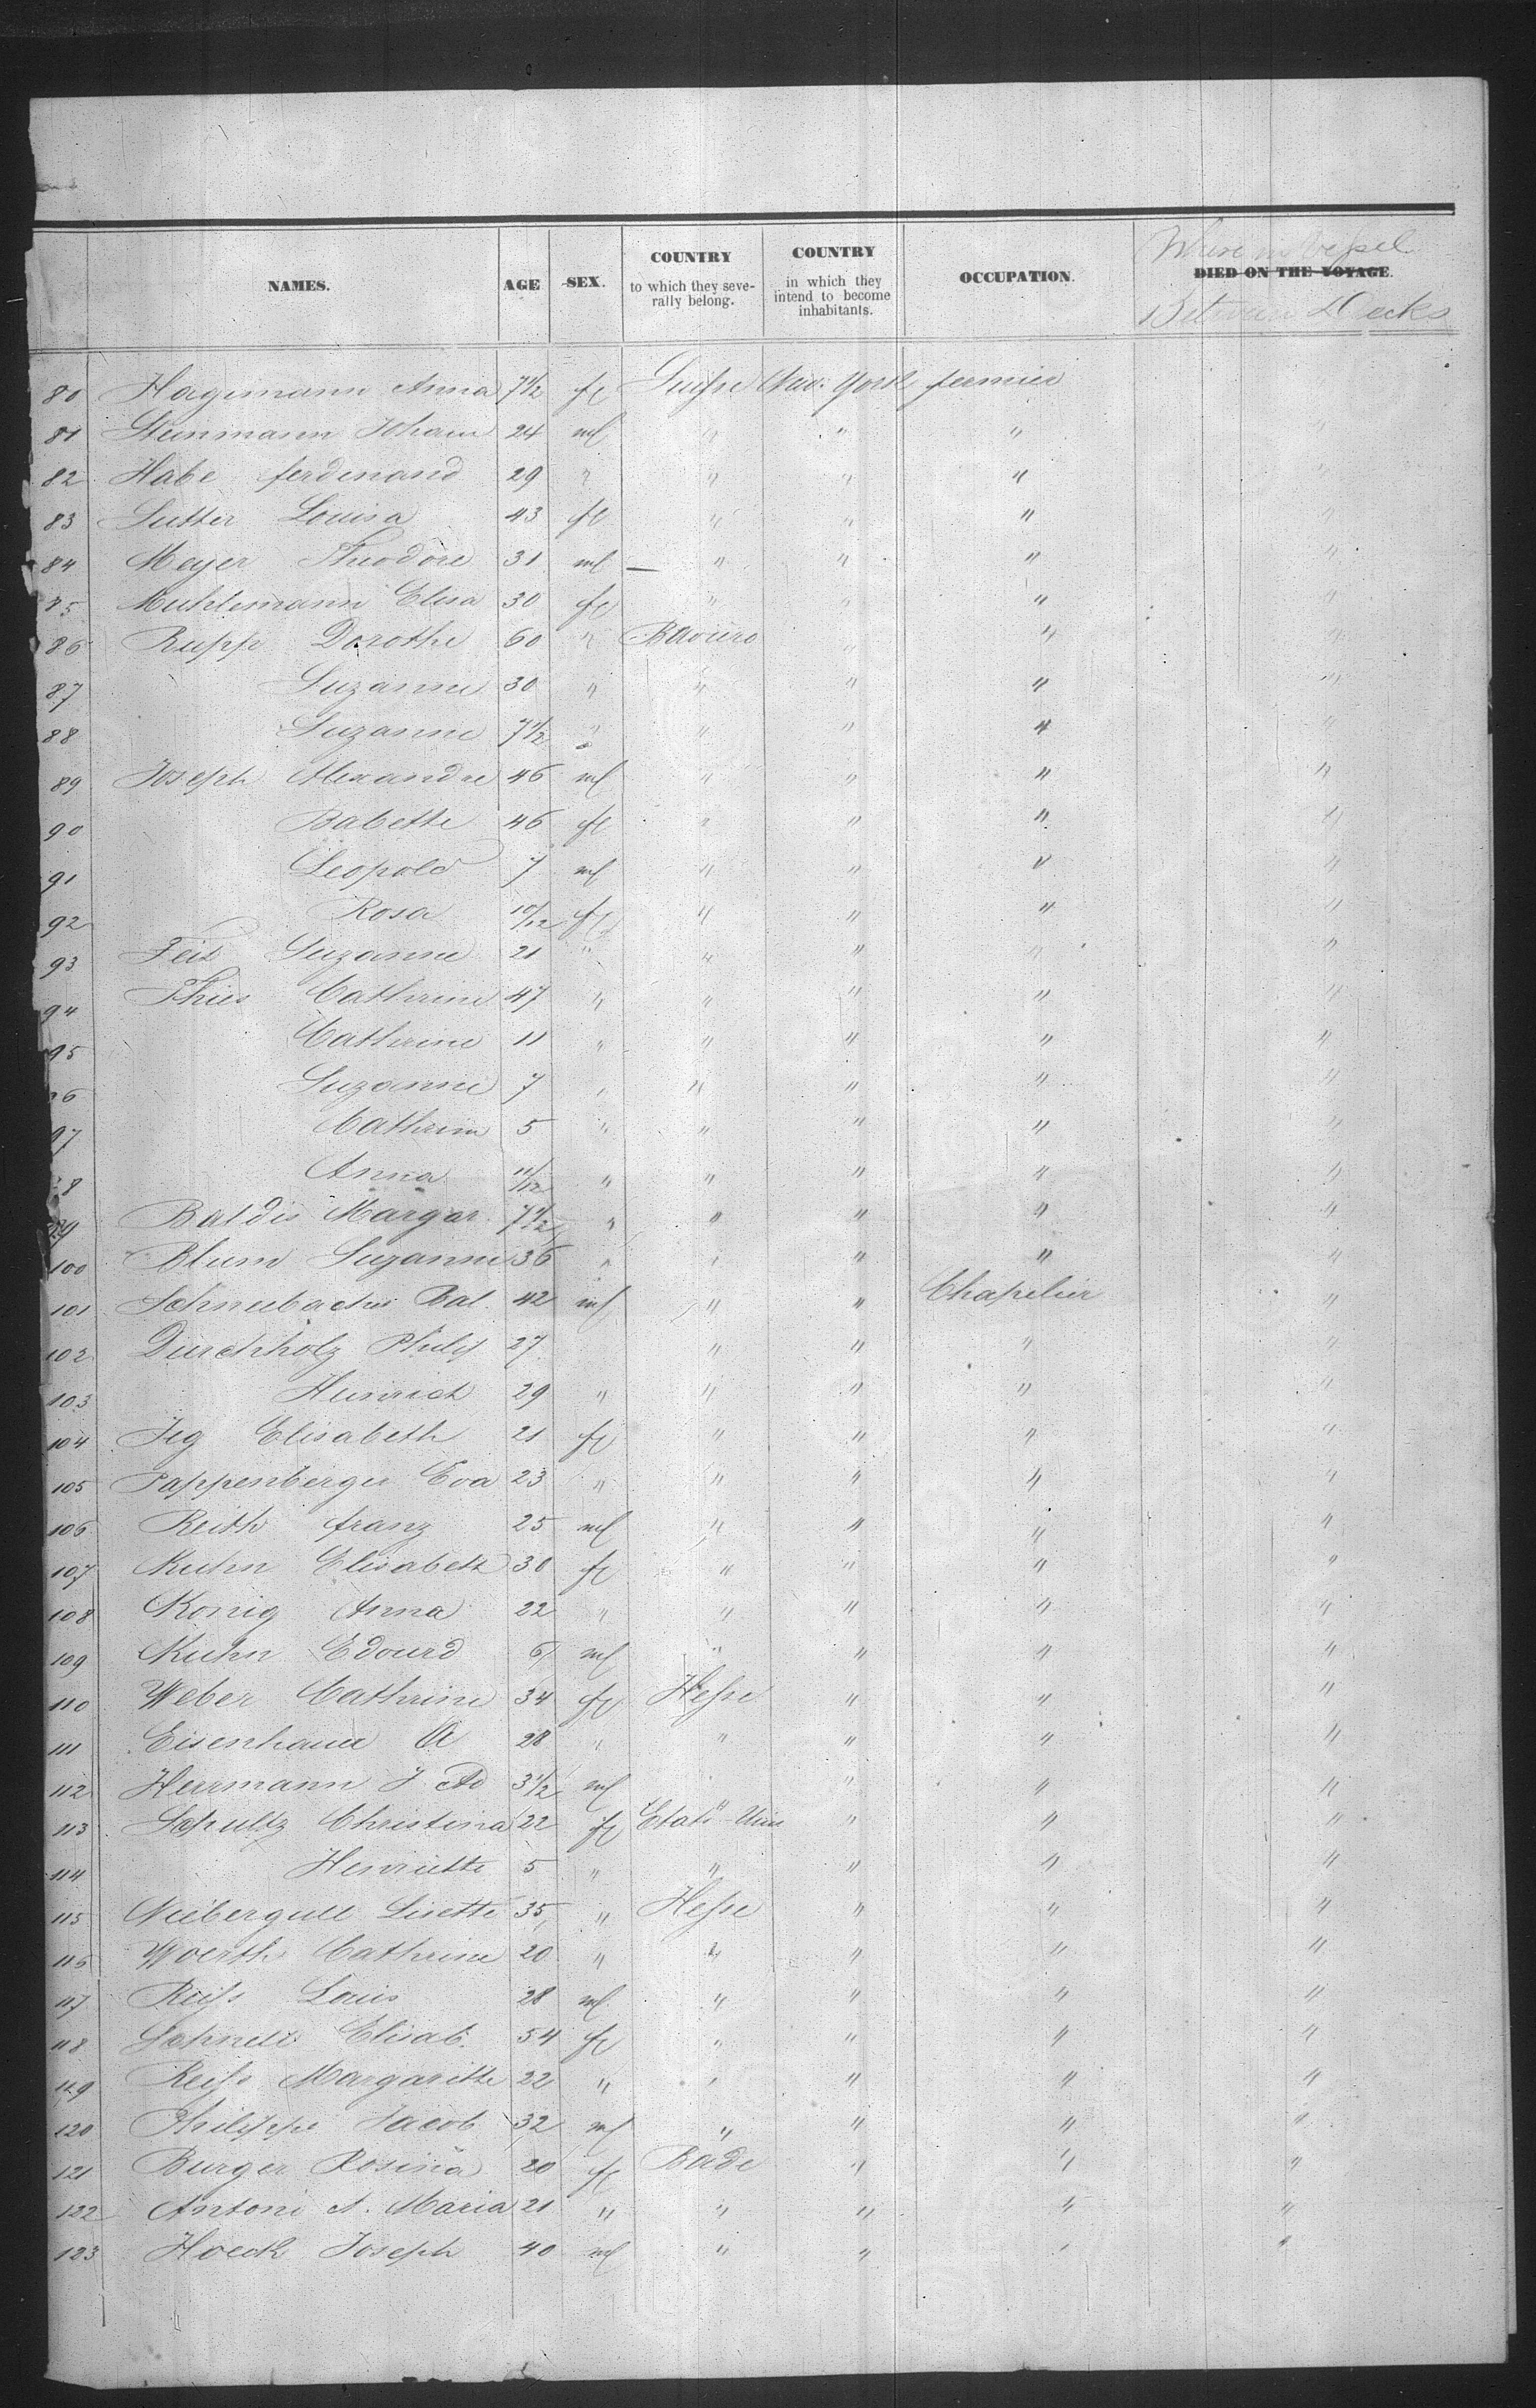 NAMES. AGE SEX. COUNTRY to which they severally belong. COUNTRY in which they intend to become inhabitants. OCCUPATION. Where in Vessel DIED ON THE VOYAGE. Between Decks
80 Hagemann Anna 7 1/2 fl Suisse New York fermier
81 Steinmann Johann 24 ml " " " "
82 Habe ferdinand 29 " " " " "
83 Sutter Louisa 43 fl " " " "
84 Meyer Theodore 31 ml — " " " "
85 Muhlemann Elisa 30 fl " " " "
86 Rupp Dorothe 60 " Baviere " " "
87 Suzanne 30 " " " " "
88 Suzanne 7 1/2 " " " " "
89 Joseph Alexandre 46 ml " " " "
90 Babette 46 fl " " " "
91 Leopold 7 ml " " " "
92 Rosa 10/12 fl " " " "
93 Feis Suzanne 21 " " " " "
94 Thies Cathrine 47 " " " " "
95 Cathrine 11 " " " " "
96 Suzanne 7 " " " " "
97 Cathrin 5 " " " " "
98 Anna 11/12 " " " " "
99 Baldis Margar. 7 1/2 " " " " "
100 Blum Suzanne 36 " " " " "
101 Bal. 42 ml " " Chapelier "
102 Durchholz Philip 27 " " " "
103 Heinrich 29 " " " " "
104 Jeg Elisabeth 21 fl " " " "
105 Pappenberger Eva 23 " " " " "
106 Reith franz 25 ml " " " "
107 Kuhn Elisabeth 30 fl " " " "
108 Konig Anna 22 " " " " "
109 Kuhn Edourd 6 ml " " " "
110 Weber Cathrine 34 fl Hesse " " "
111 Eisenhauer A 28 " " " " "
112 Herrmann J. Ad 3 1/2 ml " " " "
113 Schultz Christina 22 fl Etats-Unis " " "
114 Henriette 5 " " " " "
115 Niebergall Lisette 35 " Hesse " " "
116 Woerth Cathrine 20 " " " " "
117 Reiss Louis 28 ml " " " "
118 Elisab. 54 fl " " " "
119 Reiss Margarethe 22 " " " " "
120 Philippe Jacob 32 ml " " " "
121 Burger Rosina 20 fl Bade " " "
122 Antoni A. Maria 21 " " " " "
123 Hoeck Joseph 40 ml " " " "